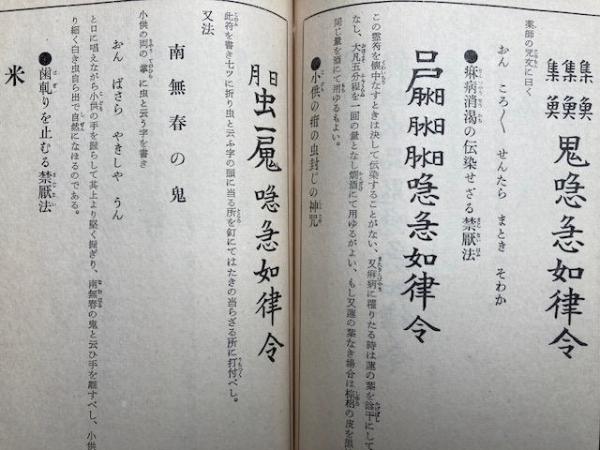 鬼喼急如律令
薬師の咒文に曰く
おん ころ〳〵 せんたら まとき そわか
●痳病消渇の伝染せざる禁厭法
喼急如律令
この霊符を懐中なすときは決して伝染することがない、又痳病に罹りたる時は蓮の葉を陰干にして
なし、大凡五分程を一回の量となし燗酒にて用ゆるがよい、もし又蓮の葉なき場合は棕梠の皮を黒
同じ量を酒にて用ゆるもよい。
●小供の疳の虫封じの神咒
喼急如律令
此符を書き七ツに折り虫と云ふ字の頭に当る所を釘にてはたきの当らざる所に打付べし。
又法
南無春の鬼
小供の両の掌に虫と云う字を書き
おん ばさら やきしや うん
と口に唱えながら小供の手を握らして其上より堅く握ぎり、南無春の鬼と云ひ手を離すべし、小供
り細く白き虫自ら出で自然になほるのである。
●歯軋りを止むる禁厭法
米